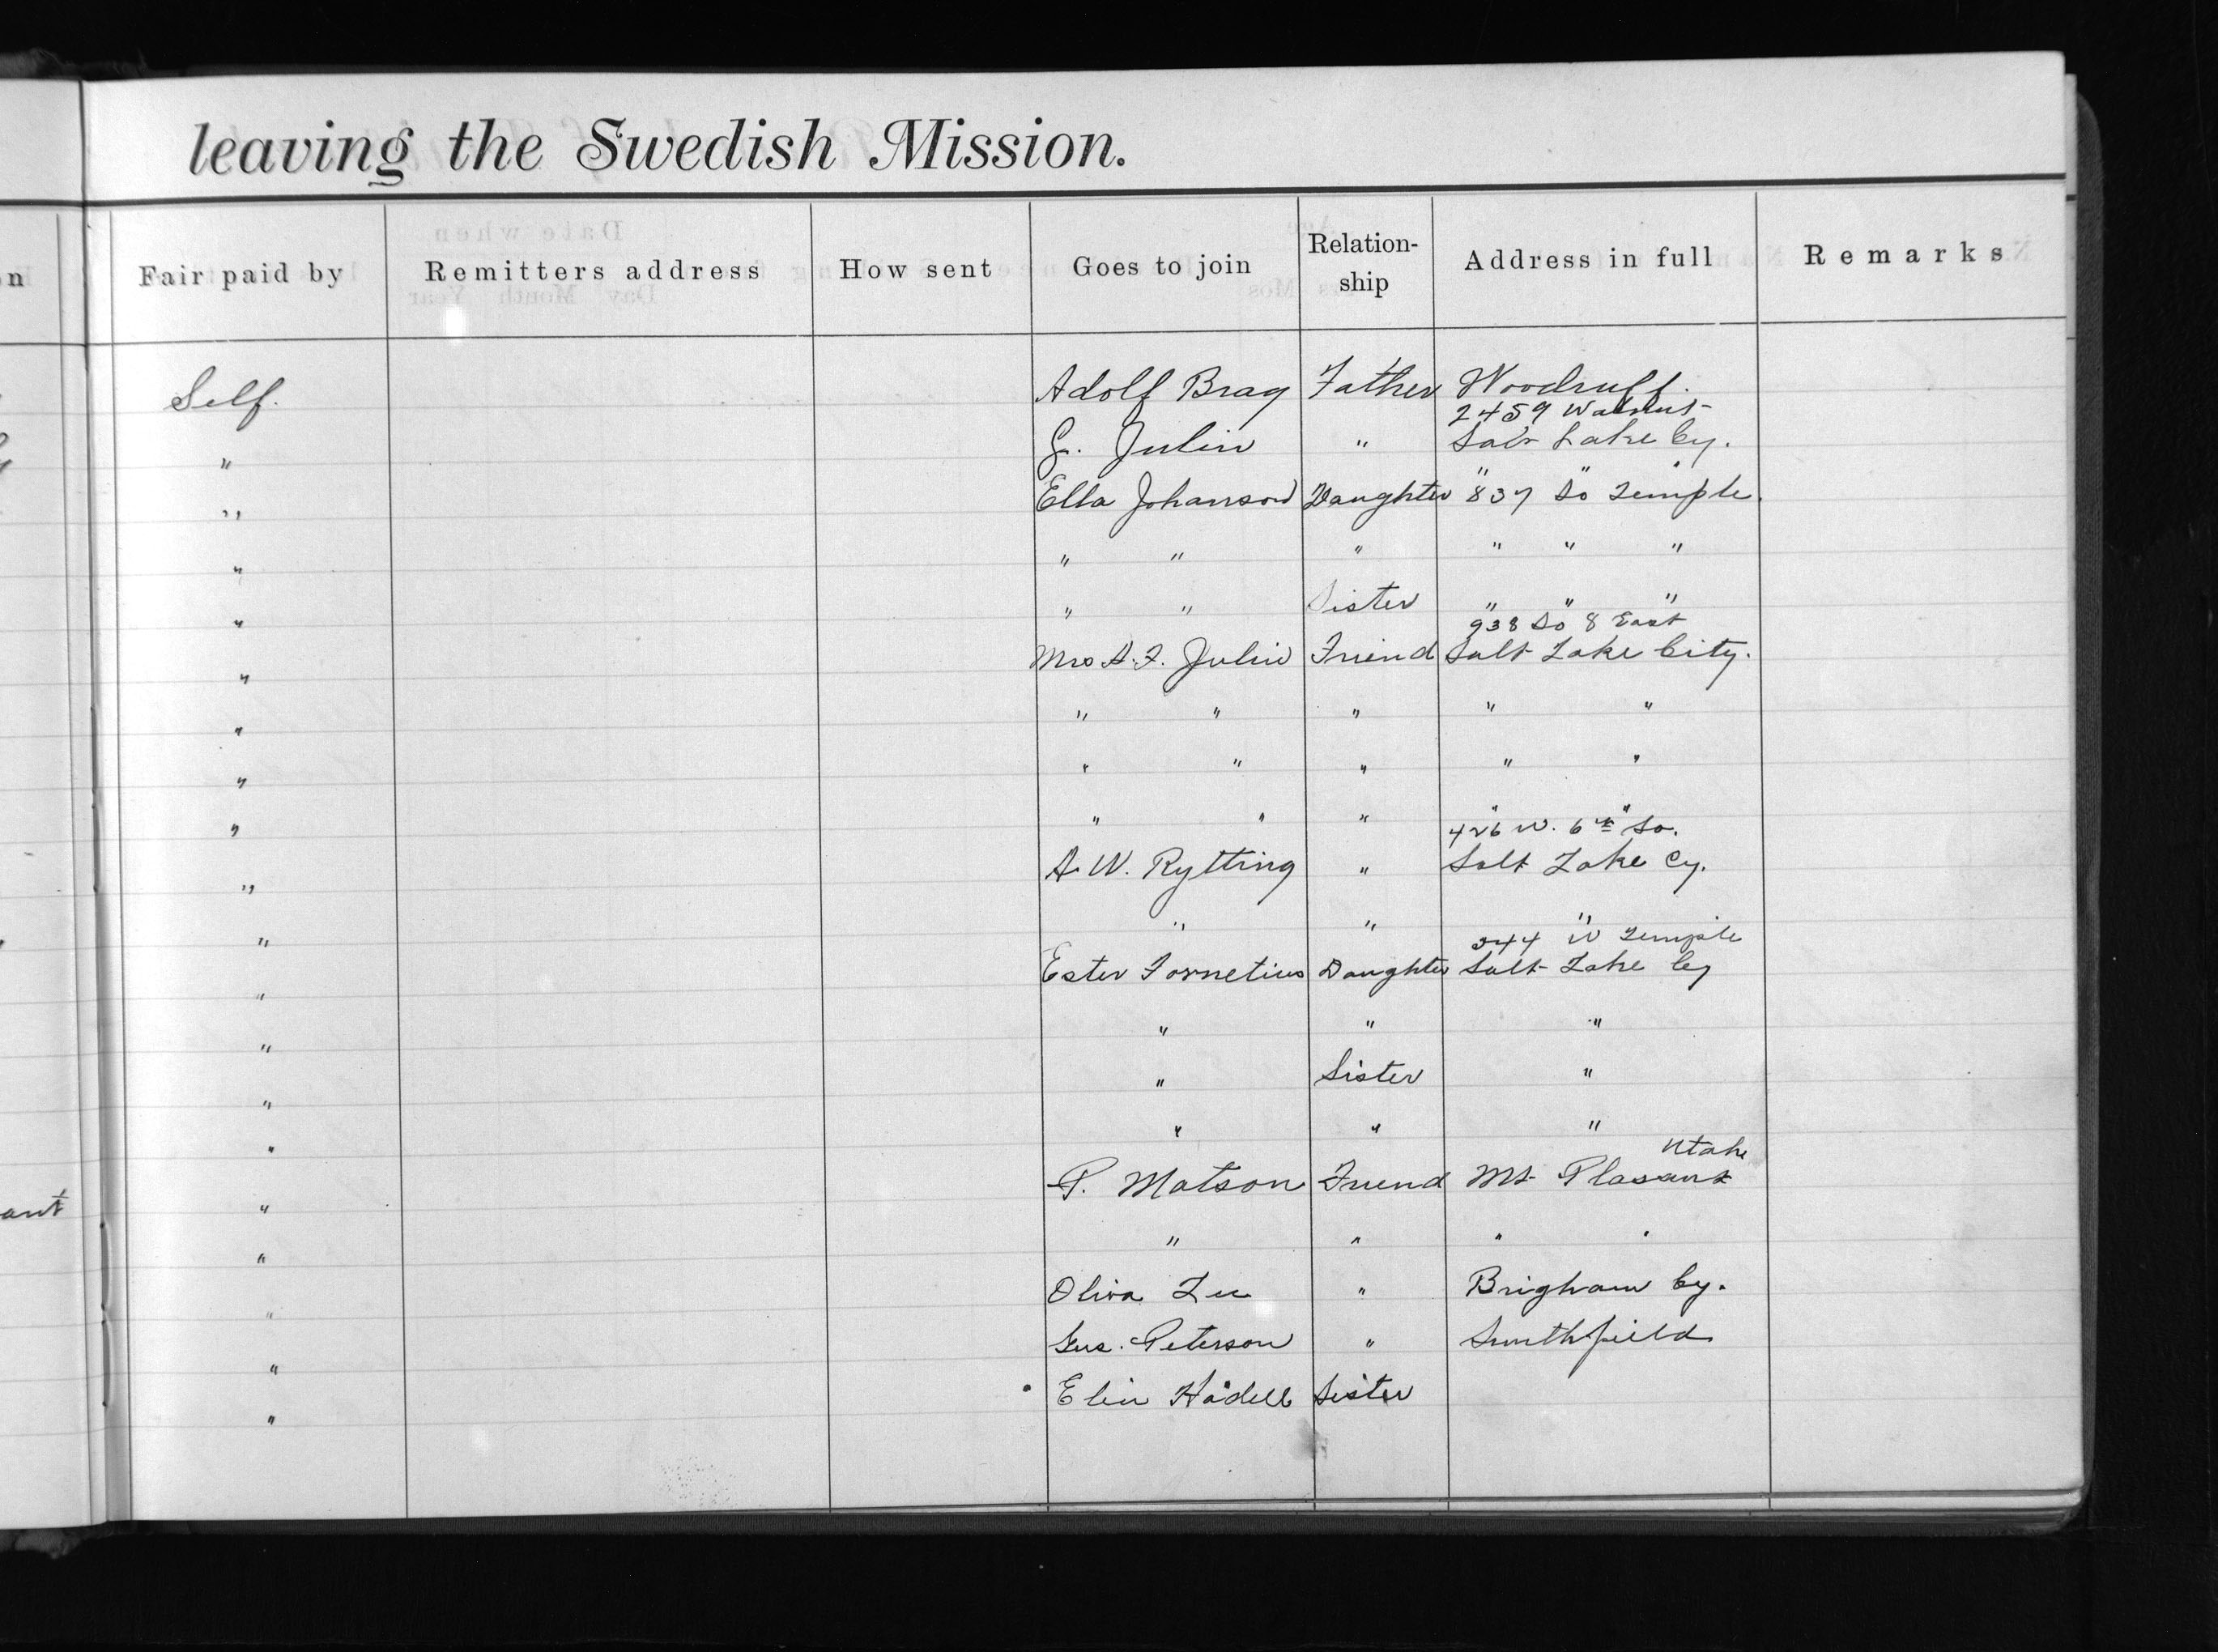 leaving the Swedish Mission.
n Fair paid by Remitters address How sent Goes to join Relation-ship Address in full Remarks
Self. Adolf Brag Father Woodruff.
2459 Walnut
" G. Julin " Salt Lake Cy.
" " "
" Ella Johanson Daughter 837 So Temple.
" " " " " " "
" " " Sister " " "
938 So 8 East
" Mrs A. F. Julin Friend Salt Lake City.
" " " " " "
" " " " " "
" " " " " "
426 W. 6th So.
" A. W. Rytting " Salt Lake Cy.
" " " "
344 W Temple
" Ester Fornelius Daughter Salt Lake Cy
" " " "
" " Sister "
" " " "
Utah
ant " P. Matson Friend Mt Plasant
" " " " "
" Oliva Lee " Brigham Cy.
" Gus. Peterson " Smithfield
" Elin Hådell Sister